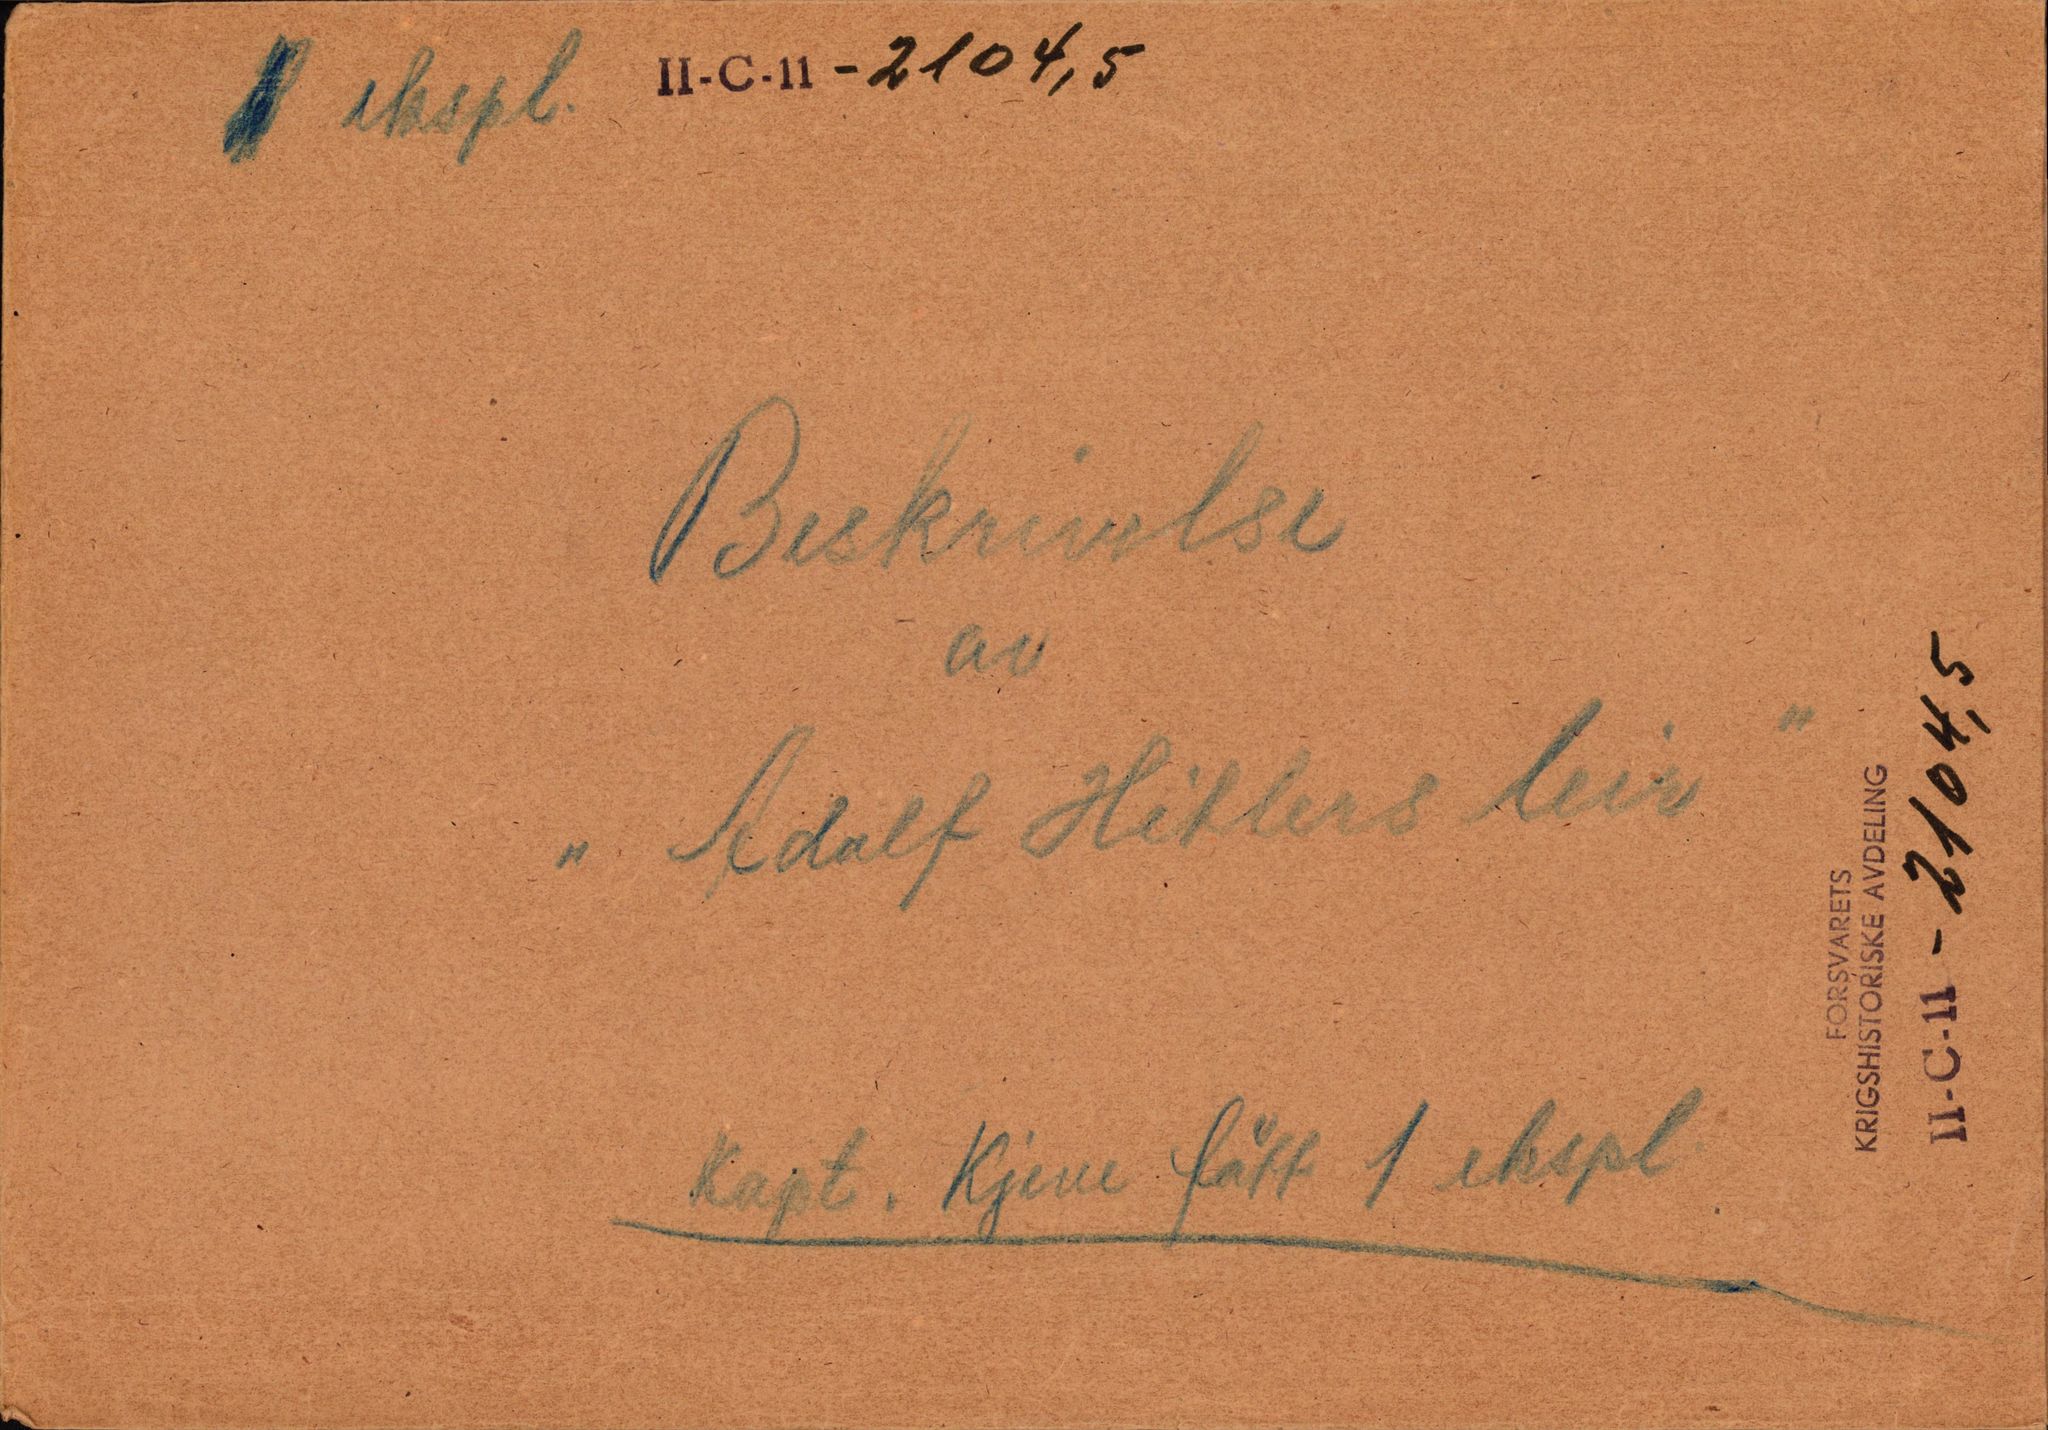 ekspl. II-C-11 - 2104,5
Beskrivelse
av
" Adolf Hitlers leir "
Kapt. Kjeve fått 1 ekspl.
FORSVARETS
KRIGSHISTORISKE AVDELING
II-C-11 - 2104,5